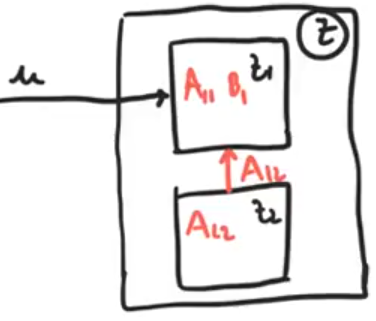 z
u
A₁₁ B₁ z₁
A₁₂
A₂₂ z₂